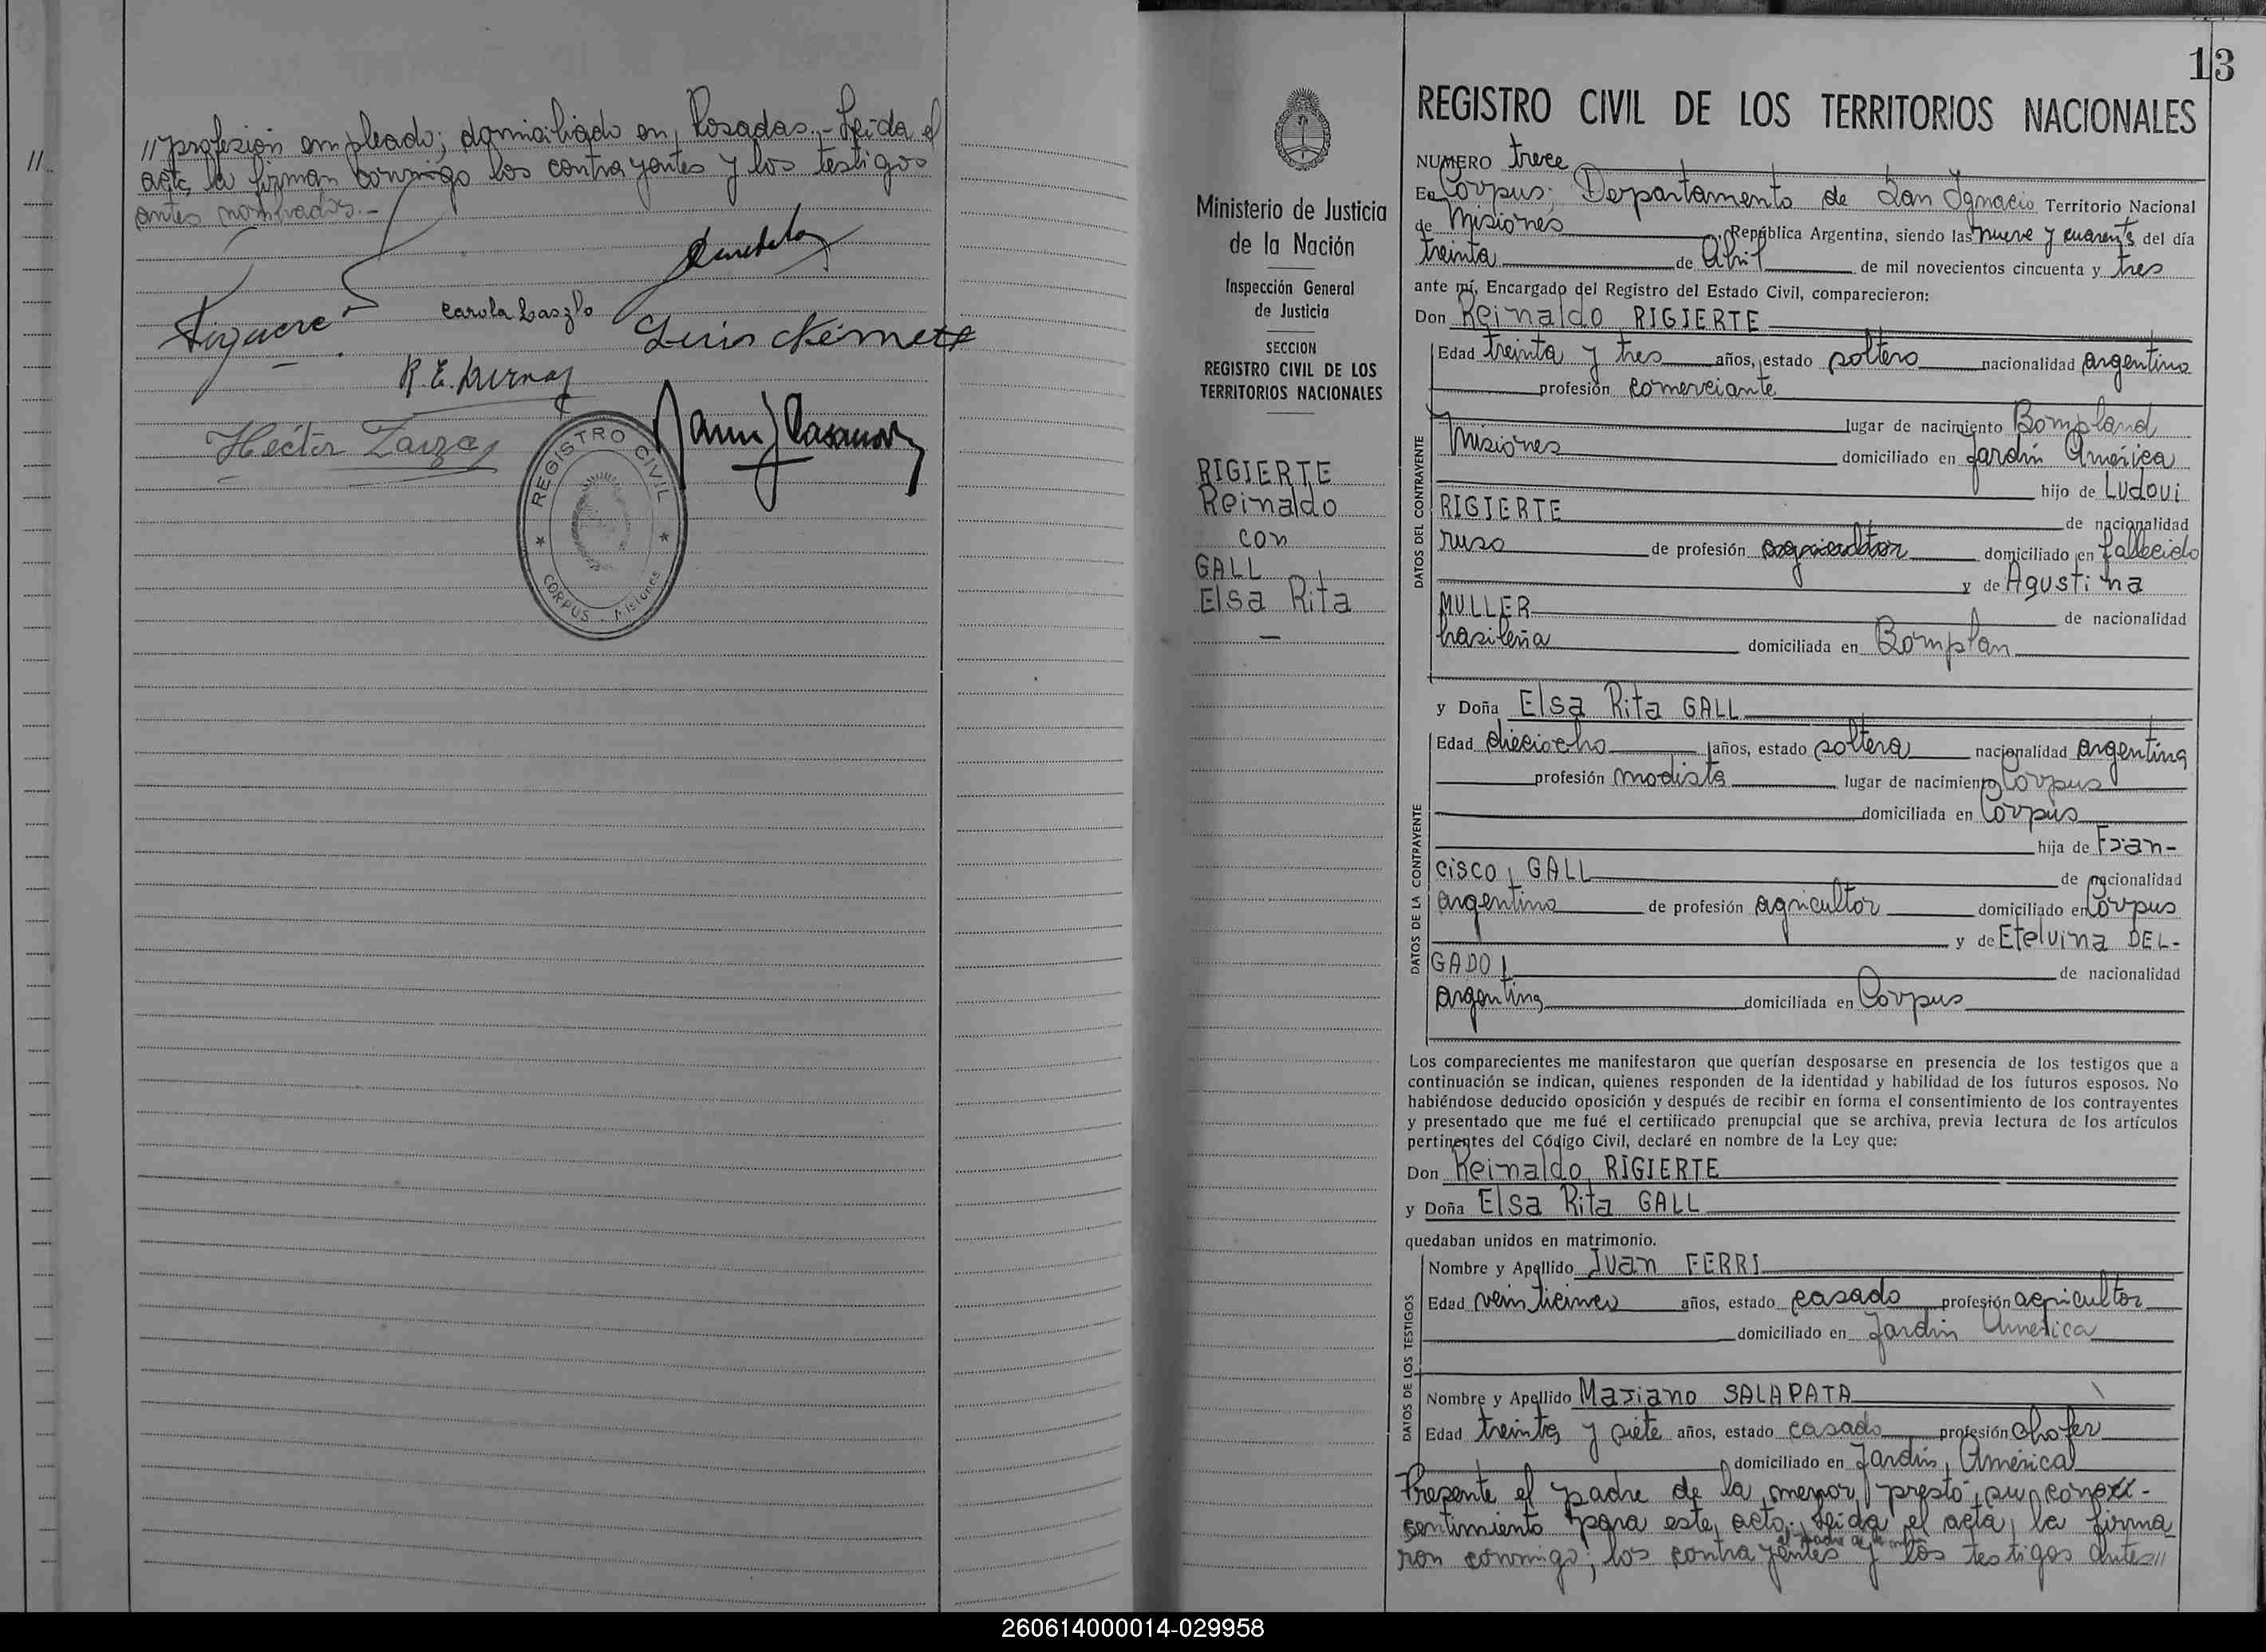 //profesión empleado; domiciliado en Posadas.- Leida el
//
acta la firman conmigo los contrayentes y los testigos
antes nombrados.-
Carola Laszlo
Luis Németh
Héctor Zarza
REGISTRO CIVIL
CORPUS - Misiones
13
Ministerio de Justicia
de la Nación
Inspección General
de Justicia
SECCION
REGISTRO CIVIL DE LOS
TERRITORIOS NACIONALES
RIGIERTE
Reinaldo
con
GALL
Elsa Rita
REGISTRO CIVIL DE LOS TERRITORIOS NACIONALES
NUMERO trece
En Corpus; Departamento de San Ignacio Territorio Nacional
de Misiones República Argentina, siendo las nueve y cuarenta del día
treinta de Abril de mil novecientos cincuenta y tres
ante mí, Encargado del Registro del Estado Civil, comparecieron:
Don Reinaldo RIGIERTE
DATOS DEL CONTRAYENTE
Edad treinta y tres años, estado soltero nacionalidad argentino
profesión comerciante
lugar de nacimiento Bompland
Misiones domiciliado en Jardín América
hijo de Ludovi
RIGIERTE de nacionalidad
ruso de profesión agricultor domiciliado en fallecido
y de Agustina
MULLER de nacionalidad
brasileña domiciliada en Bomplan
y Doña Elsa Rita GALL
DATOS DE LA CONTRAYENTE
Edad dieciocho años, estado soltera nacionalidad argentina
profesión modista lugar de nacimiento Corpus
domiciliada en Corpus
hija de Fran-
cisco GALL de nacionalidad
argentino de profesión agricultor domiciliado en Corpus
y de Etelvina DEL-
GADO de nacionalidad
argentina domiciliada en Corpus
Los comparecientes me manifestaron que querían desposarse en presencia de los testigos que a
continuación se indican, quienes responden de la identidad y habilidad de los futuros esposos. No
habiéndose deducido oposición y después de recibir en forma el consentimiento de los contrayentes
y presentado que me fué el certificado prenupcial que se archiva, previa lectura de los artículos
pertinentes del Código Civil, declaré en nombre de la Ley que:
Don Reinaldo RIGIERTE
y Doña Elsa Rita GALL
quedaban unidos en matrimonio.
DATOS DE LOS TESTIGOS
Nombre y Apellido Juan FERRI
Edad veinticinco años, estado casado profesión agricultor
domiciliado en Jardín America
Nombre y Apellido Mariano SALAPATA
Edad treinta y siete años, estado casado profesión chofer
domiciliado en Jardín América
Presente el padre de la menor prestó su con
sentimiento para este acto; Leida el acta, la firma
ron conmigo; los contrayentes y los testigos antes//
260614000014-029958